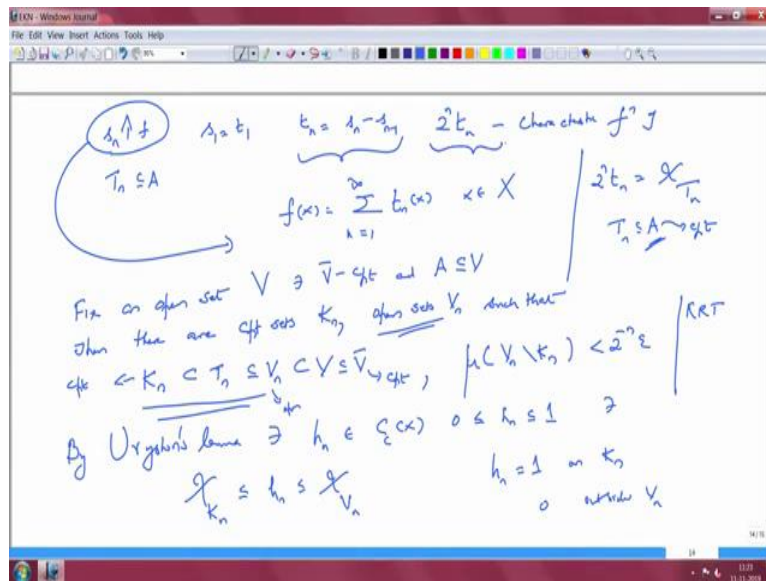 EKN - Windows Journal
File Edit View Insert Actions Tools Help
s_n ↑ f   s_1 = t_1   t_n = s_n - s_{n-1}   2^n t_n - characteristic f^n of
T_n ⊆ A
f(x) = ∑_{n=1}^∞ t_n(x)   x ∈ X
2^n t_n = χ_{T_n}
T_n ⊆ A → cpt
Fix an open set V ∋ V̄ - cpt and A ⊆ V
Then there are cpt sets K_n, open sets V_n such that
cpt ← K_n ⊂ T_n ⊆ V_n ⊂ V ⊆ V̄ → cpt, μ(V_n \ K_n) < 2^{-n} ε
open
RRT
By Urysohn's lemma ∃ h_n ∈ C_c(X) 0 ≤ h_n ≤ 1 ∋
χ_{K_n} ≤ h_n ≤ χ_{V_n}
h_n = 1 on K_n
0 outside V_n
14/15
14
11:23
11-11-2019